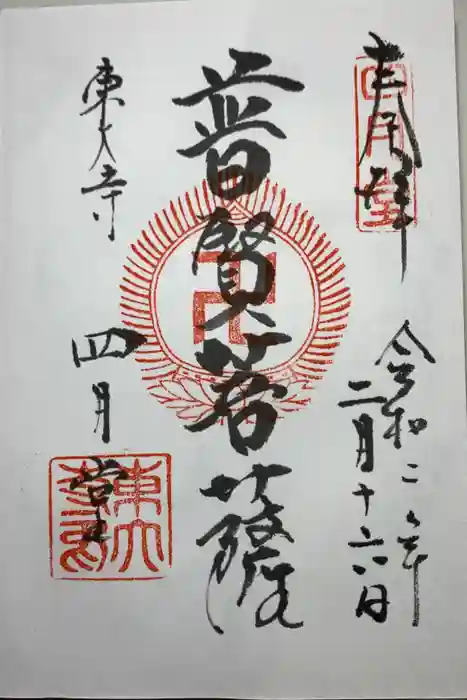 奉拝
四月堂
令和二年
二月十六日
普賢菩薩
東大寺
四月堂